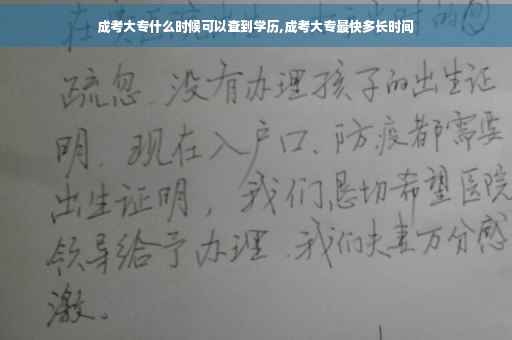 成考大专什么时候可以查到学历,成考大专最快多长时间
疏忽、没有办理孩子的出生证
明、现在入户口、防疫都需要
出生证明，我们恳切希望医院
领导给予办理、我们夫妻万分感
激。